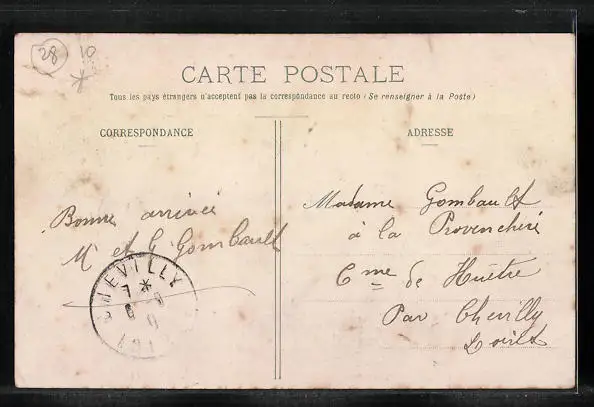 28
10
CARTE POSTALE
Tous les pays étrangers n'acceptent pas la correspondance au recto (Se renseigner à la Poste)
CORRESPONDANCE
ADRESSE
Bonne arrivée
M et G Gombault
Madame Gombault
à la Provenchère
Cme de Huêtre
Par Chevilly
Loiret
CHEVILLY